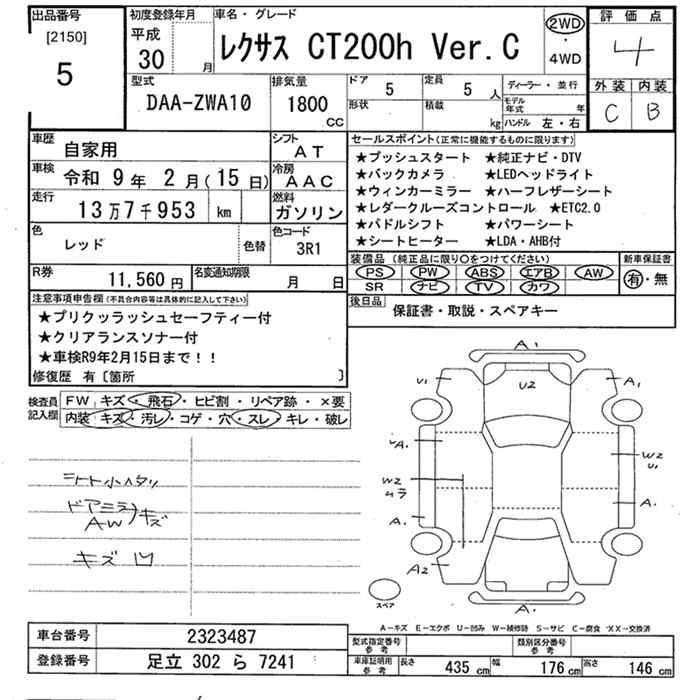 出品番号 初度登録年月 車名・グレード 評価点
[2150] 平成 レクサス CT200h Ver.C 2WD 4
5 30 月 ・ 4WD
型式 排気量 ドア 定員 ディーラー・並行 外装 内装
DAA-ZWA10 1800 CC 5 5 人 モデル年式 年 C B
形状 積載 kg ハンドル 左・右
車歴 自家用 シフト AT セールスポイント(正常に機能するものに限ります)
車検 令和 9 年 2 月(15 日) 冷房 AAC
走行 13万7千953 km 燃料 ガソリン
色 レッド 色替 色コード 3R1
★プッシュスタート ★純正ナビ・DTV
★バックカメラ ★LEDヘッドライト
★ウィンカーミラー ★ハーフレザーシート
★レダークルーズコントロール ★ETC2.0
★パドルシフト ★パワーシート
★シートヒーター ★LDA・AHB付
R券 11,560 円 名変通知期限 月 日
装備品(純正品に限り○をつけてください) 新車保証書
PS PW ABS エアB AW 有・無
SR ナビ TV カワ
後日品 保証書・取説・スペアキー
注意事項申告欄(不具合内容等は具体的に記入して下さい)
★プリクッラッシュセーフティー付
★クリアランスソナー付
★車検R9年2月15日まで!!
修復歴 有〔箇所 〕
検査員記入欄 FW キズ・飛石・ヒビ割・リペア跡・×要
内装・キズ・汚レ・コゲ・穴・スレ・キレ・破レ
シート小ヘタリ
ドアミラ
AW キズ
キズ 凹
A1
U1 U2 A1
A1 W2 U1
W2 ムラ
A1 A1
A2
スペア A1
A-キズ E-エクボ U-凹み W-補修跡 S-サビ C-腐食 XX-交換済
車台番号 2323487 型式指定番号 参考 類別区分番号 参考
登録番号 足立 302 ら 7241 車庫証明用 参考 長さ 435 cm 幅 176 cm 高さ 146 cm